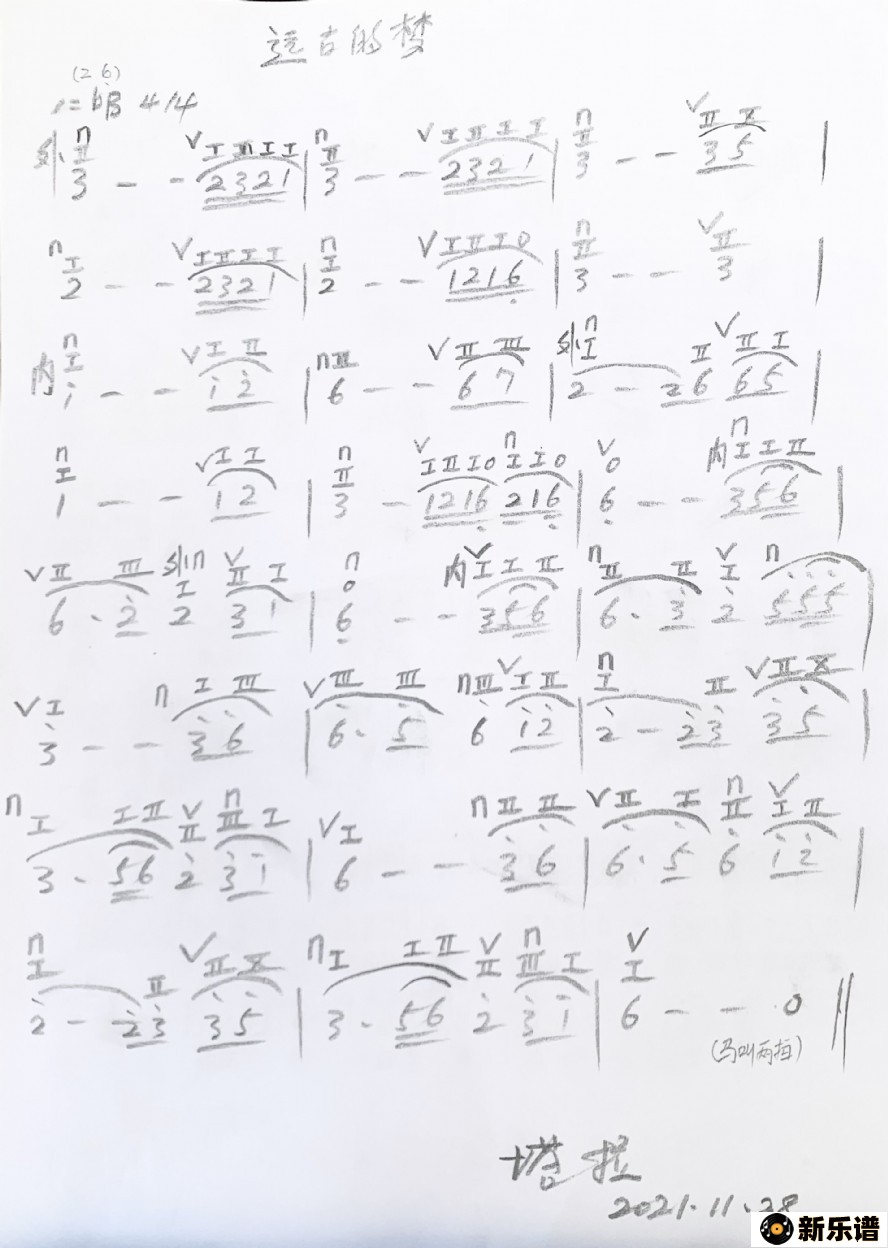 远古的梦
(2 6)
1=bB 4/4
外 3 - - 2321 | 3 - - 2321 | 3 - - 35 |
2 - - 2321 | 2 - - 1216 | 3 - - 3 |
内 1 - - 12 | 6 - - 67 | 外 2 - 26 65 |
1 - - 12 | 3 - 1216 216 | 6 - - 内 356 |
6 · 2 外 2 31 | 6 - - 内 356 | 6 · 3 2 555 |
3 - - 36 | 6 · 5 6 12 | 2 - 23 35 |
3 · 56 2 31 | 6 - - 36 | 6 · 5 6 12 |
2 - 23 35 | 3 · 56 2 31 | 6 - - 0 ‖
(马叫两拍)
塔拉
2021.11.28
新乐谱